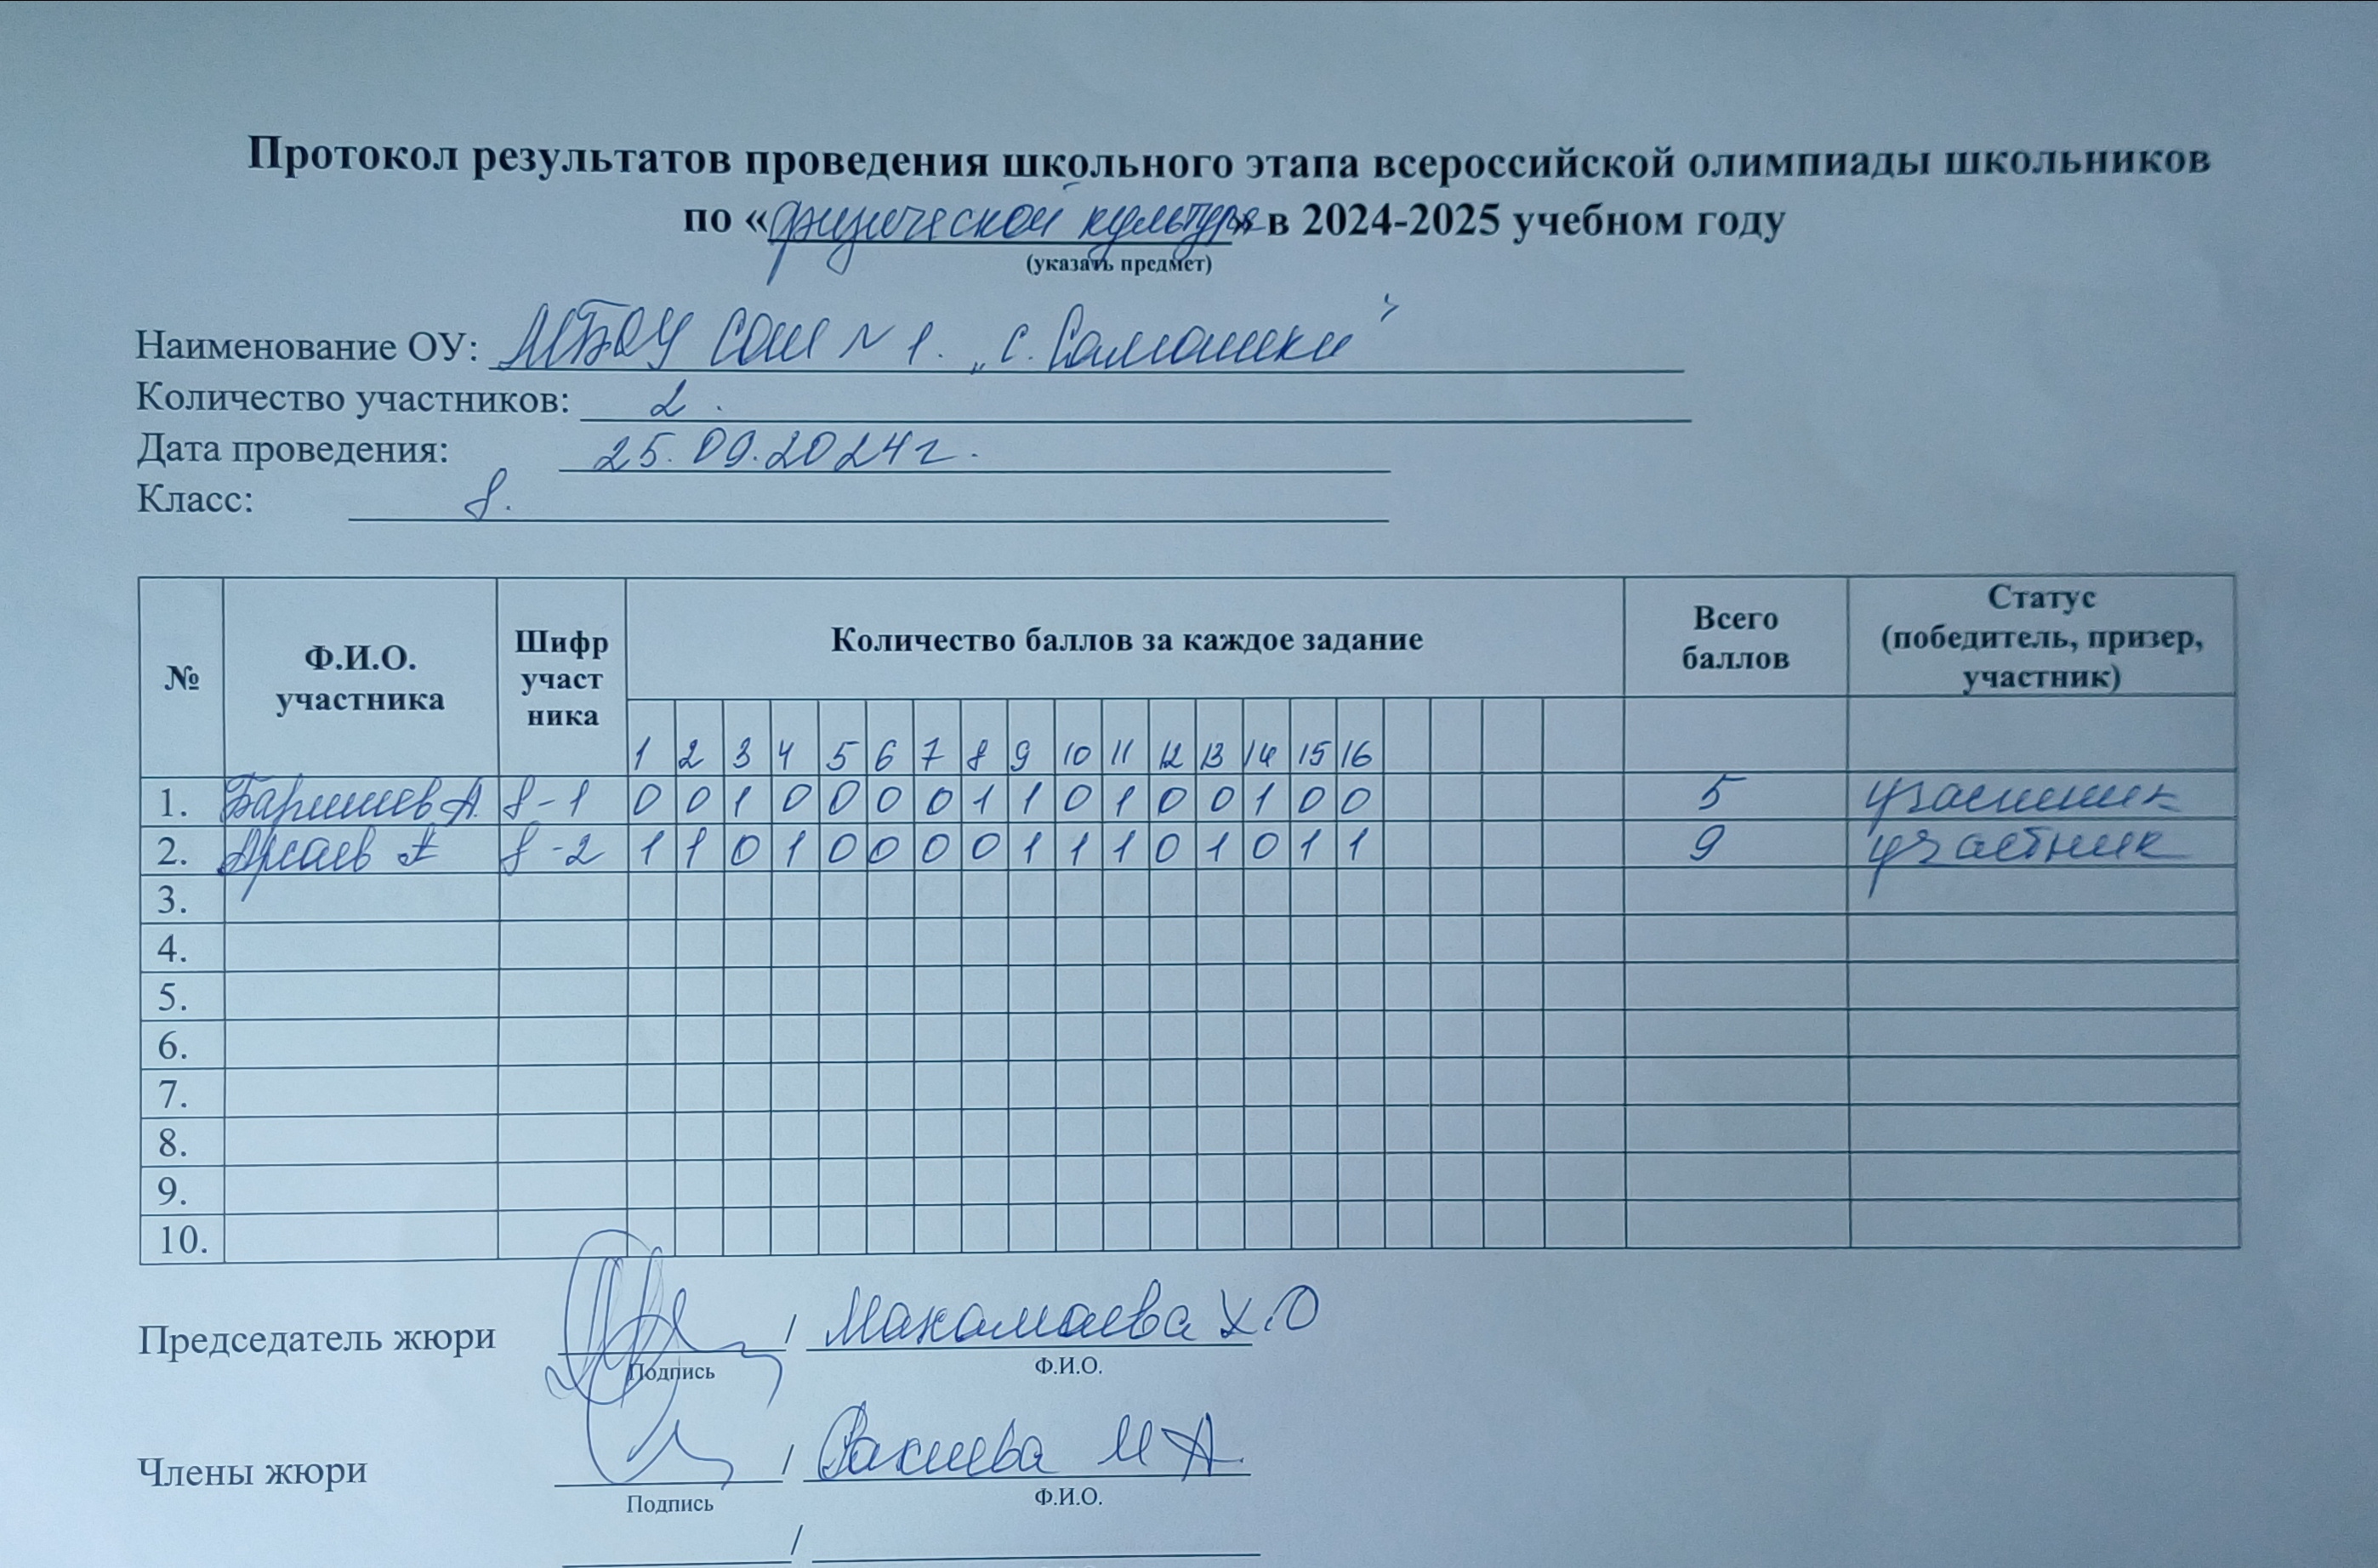 Протокол результатов проведения школьного этапа всероссийской олимпиады школьников
по «физической культуре» в 2024-2025 учебном году
(указать предмет)
Наименование ОУ: МБОУ СОШ № 1. „с. Самашки"
Количество участников: 2.
Дата проведения: 25.09.2024г.
Класс: 8.
№ Ф.И.О. участника Шифр участ ника Количество баллов за каждое задание Всего баллов Статус (победитель, призер, участник)
1 2 3 4 5 6 7 8 9 10 11 12 13 14 15 16
1. А. 8-1 0 0 1 0 0 0 0 1 1 0 1 0 0 1 0 0 5 участник
2. Арсаев 8-2 1 1 0 1 0 0 0 0 1 1 1 0 1 0 1 1 9 участник
3.
4.
5.
6.
7.
8.
9.
10.
Председатель жюри / Махамаева Х.О
Подпись Ф.И.О.
Члены жюри / М А.
Подпись Ф.И.О.
/